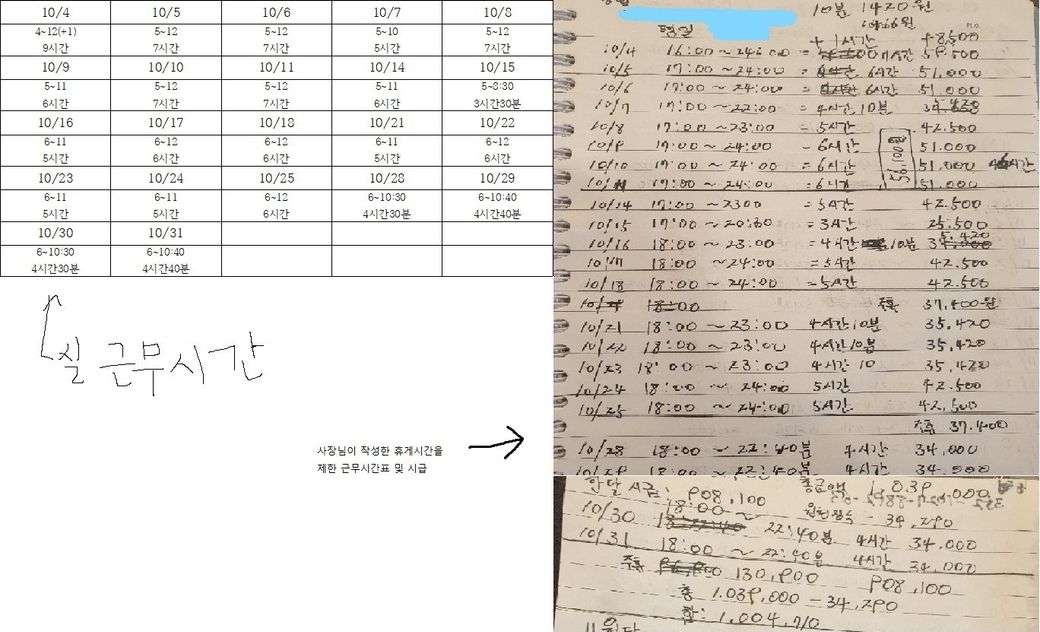 10/4 10/5 10/6 10/7 10/8
4~12(+1) 5~12 5~12 5~10 5~12
9시간 7시간 7시간 5시간 7시간
10/9 10/10 10/11 10/14 10/15
5~11 5~12 5~12 5~11 5~8:30
6시간 7시간 7시간 6시간 3시간30분
10/16 10/17 10/18 10/21 10/22
6~11 6~12 6~12 6~11 6~12
5시간 6시간 6시간 5시간 6시간
10/23 10/24 10/25 10/28 10/29
6~11 6~11 6~12 6~10:30 6~10:40
5시간 5시간 6시간 4시간30분 4시간40분
10/30 10/31
6~10:30 6~10:40
4시간30분 4시간40분
실 근무시간
사장님이 작성한 휴게시간을
제한 근무시간표 및 시급
10분 1420원
평일
+1시간 +8,500
10/4 16:00~24:00 = 7시간 59.500
10/5 17:00~24:00 = 6시간 51.000
10/6 17:00~24:00 = 6시간 51.000
10/7 17:00~22:00 = 4시간 10분
10/8 17:00~23:00 = 5시간 42.500
10/9 17:00~24:00 - 6시간 51.000
10/10 17:00~24:00 = 6시간 51.000
56,100원
10/11 17:00~24:00 = 6시간 51.000
10/14 17:00~2300 = 5시간 42.500
10/15 17:00~20:30 = 3시간 25.500
10/16 18:00~23:00 = 4시간 10분 35.420
10/17 18:00~24:00 = 5시간 42.500
10/18 18:00~24:00 = 5시간 42.500
주휴 37,400원
10/21 18:00~23:00 4시간10분 35.420
10/22 18:00~23:00 4시간10분 35.420
10/23 18:00~23:00 4시간 10 35.420
10/24 18:00~24:00 5시간 42.500
10/25 18:00~24:00 5시간 42,500
주휴 37.400
10/28 18:00~22:40분 4시간 34,000
10/29 18:00~22:40분 4시간 34.000
한달 시급: 908,100 총금액 1.039,000
원천징수 - 34,290
10/30 18:00~22:40분 4시간 34.000
10/31 18:00~22:40분 4시간 34,000
주휴 130,900 908,100
총 1.039,000 - 34,290
합: 1,004,710
11월달